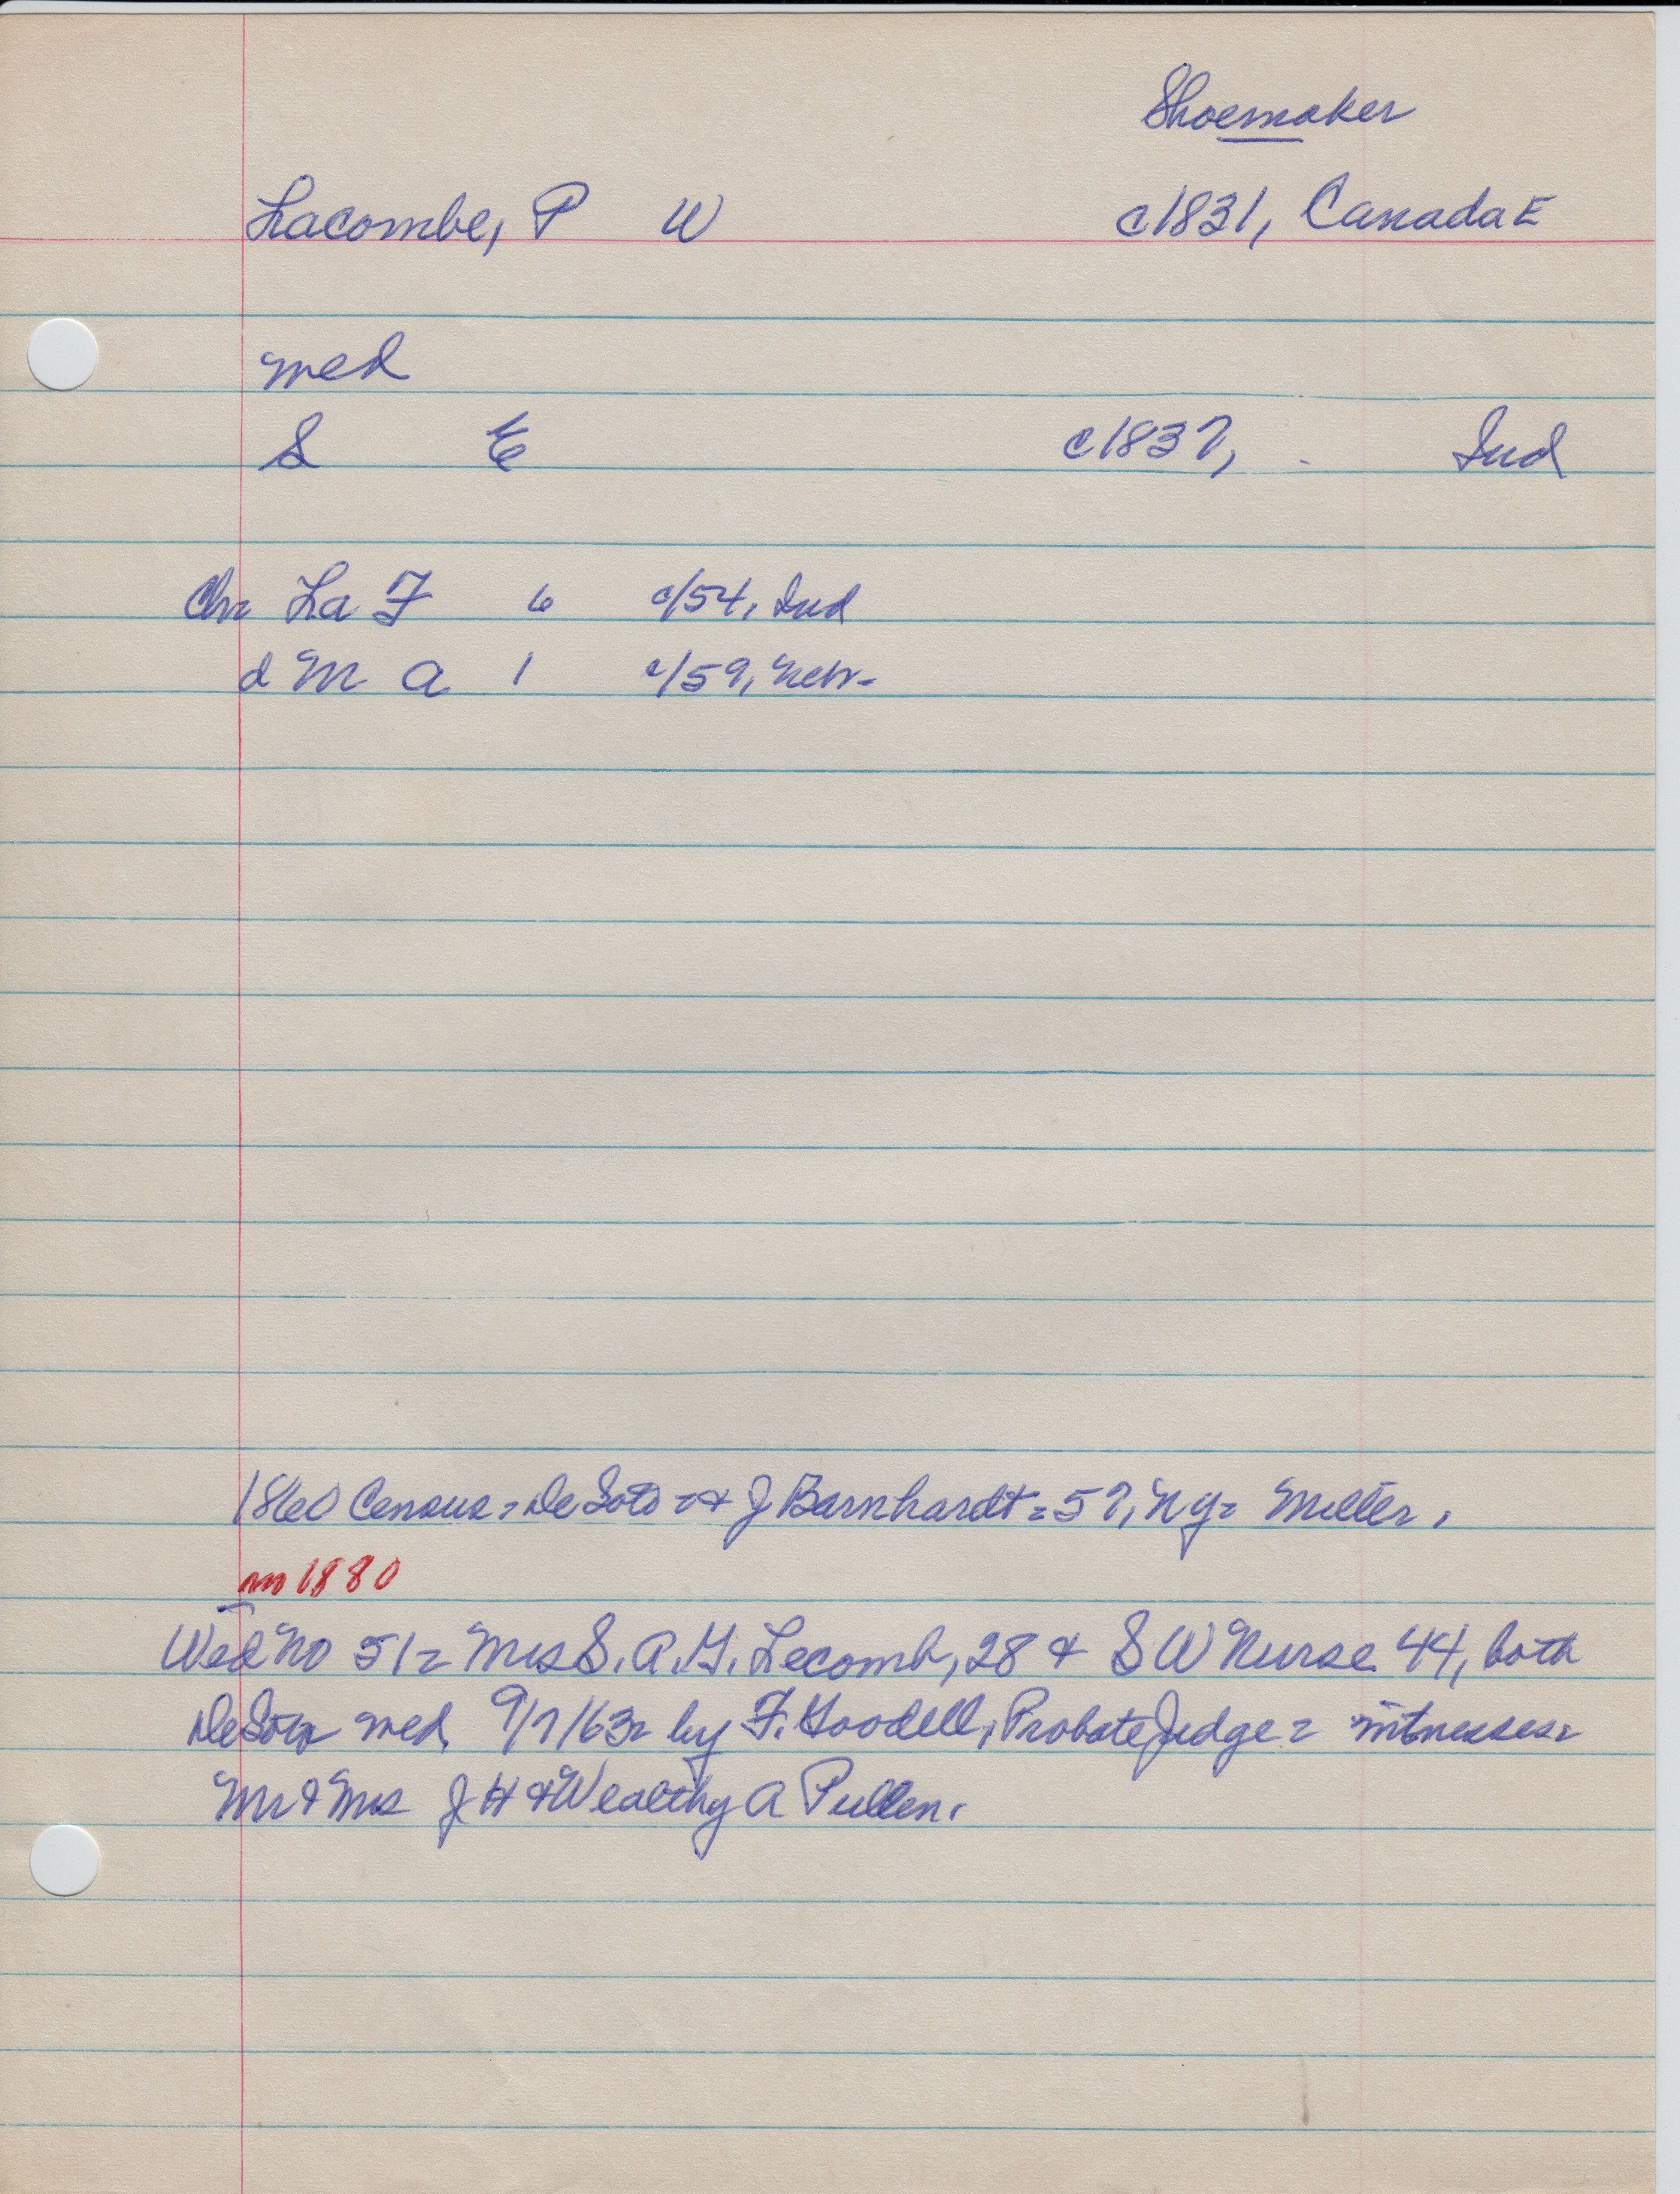 Shoemaker
Lacombe, P W c1831, Canada E
med
S E c1837, Ind
Chr La F 6 c/54, Ind
d M A 1 c/59, Nebr-
1860 Census = De Soto = & J Barnhardt = 57, NY = Miller.
1880
Wed No 51 = Mrs S. A. G. Lecomb, 28 & S W Nurse 44, both
DeSoto med 9/7/63 by F. Goodell, Probate Judge = witnesses =
Mr & Mrs J H & Wealthy A Pullen.